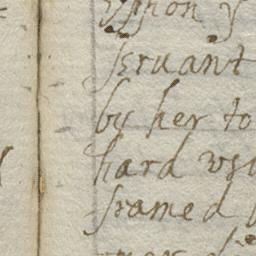 vppon y
seruant
by her to
hard vsa
framed